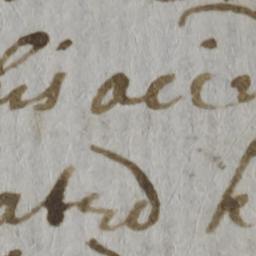 his acci
ated k